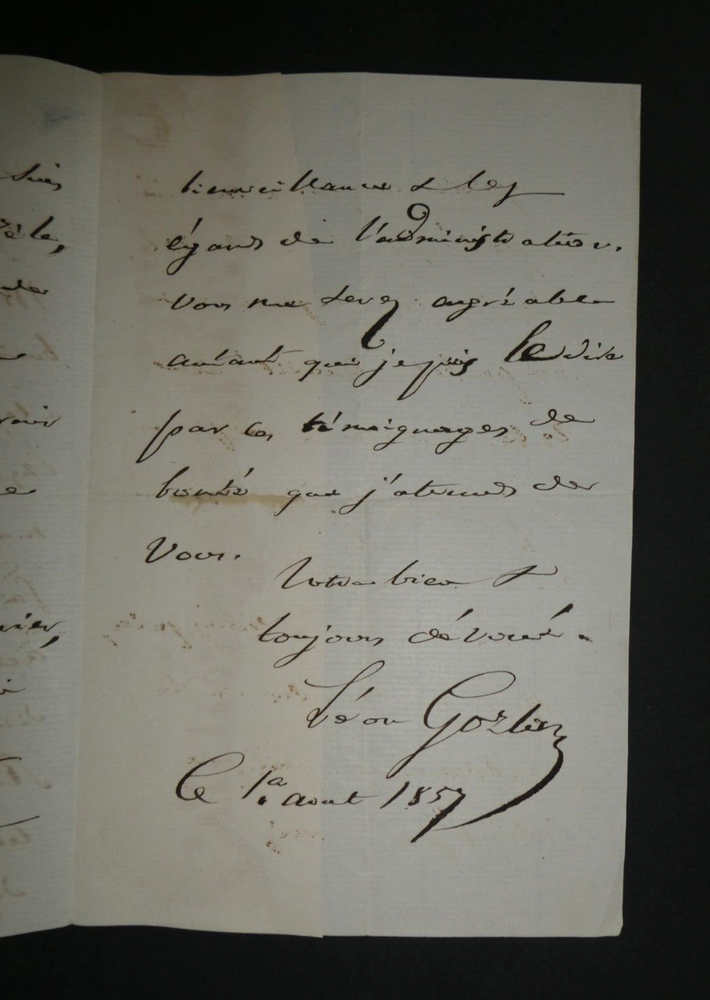 bienveillance & les
égards de l'administration.
Vous me serez agréable
autant que je puis le dire
par ces témoignages de
bonté que j'attends de
Vous.
Votre bien &
toujours dévoué.
Léon Gozlan
Ce 1er aout 1857